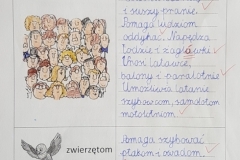 i suszy pranie.
Pomaga ludziom
oddychać. Napędza
łodzie i żaglówki
Unosi latawce,
balony i paralotnie
Umożliwia latanie
szybowcom, samolotom
motolotniom.
zwierzętom
Pomaga szybować
ptakom i owadom